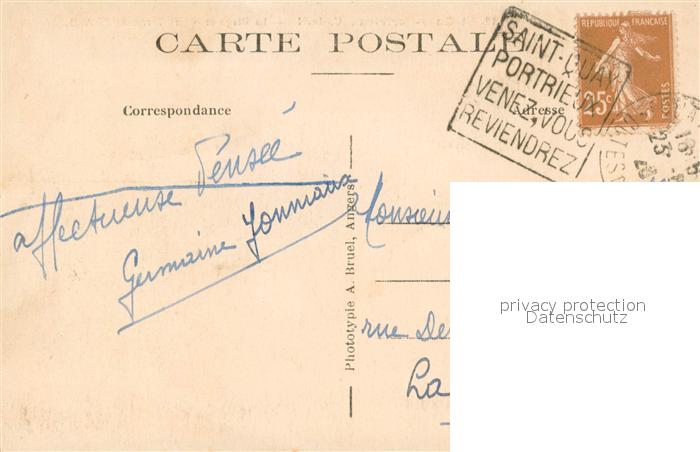 CARTE POSTALE
SAINT-QUAY
PORTRIEUX
VENEZ, VOUS
REVIENDREZ
REPUBLIQUE FRANÇAISE
25c
POSTES
18
23
Correspondance
Adresse
affectueuse Pensée
Germaine
Monsieur
rue De
La
Phototypie A. Bruel, Angers
privacy protection
Datenschutz